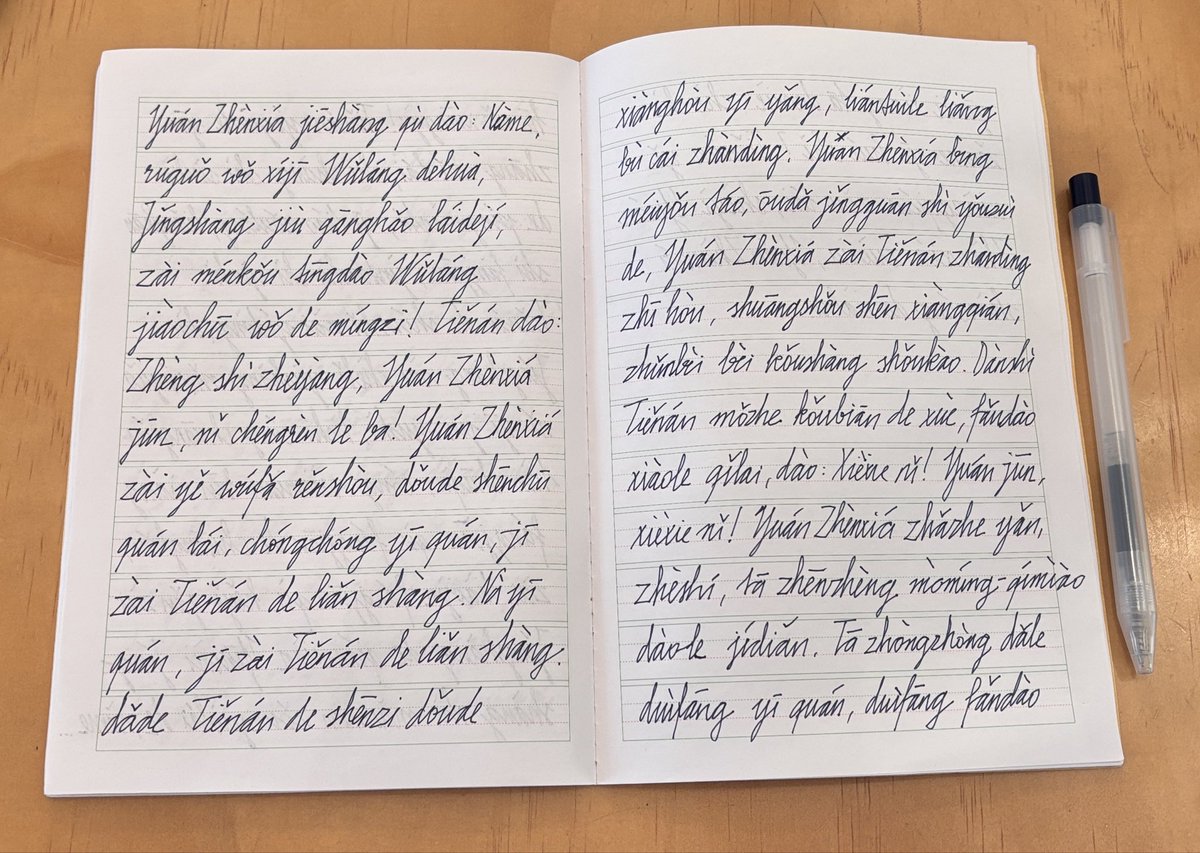 Yuán Zhènxiá jiēshàng qù dào: Nàme,
rúguǒ wǒ xíjī Wǔláng dehuà,
Jǐngshàng jiù gānghǎo láidejí,
zài ménkǒu tīngdào Wǔláng
jiàochū wǒ de míngzi! Tiěnán dào:
Zhèng shì zhèyàng, Yuán Zhènxiá
jūn, nǐ chéngrèn le ba! Yuán Zhènxiá
zài yě wúfǎ rěnshòu, dǒude shēnchū
quán lái, chóngchóng yī quán, jī
zài Tiěnán de liǎn shàng. Nà yī
quán, jī zài Tiěnán de liǎn shàng.
dǎde Tiěnán de shēnzi dǒude
xiànghòu yī yǎng, liántuìle liǎng
bù cái zhàndìng. Yuán Zhènxiá bìng
méiyǒu táo, ōudǎ jǐngguān shì yǒuzuì
de, Yuán Zhènxiá zài Tiěnán zhàndìng
zhī hòu, shuāngshǒu shēn xiàngqián,
zhǔnbèi bèi kòushàng shǒukào. Dànshì
Tiěnán mǒzhe kǒubiān de xuè, fǎndào
xiàole qǐlai, dào: Xièxie nǐ! Yuán jūn,
xièxie nǐ! Yuán Zhènxiá zhǎzhe yǎn,
zhèshí, tā zhēnzhèng mòmíng-qímiào
dàole jídiǎn. Tā zhòngzhòng dǎle
duìfāng yī quán, duìfāng fǎndào